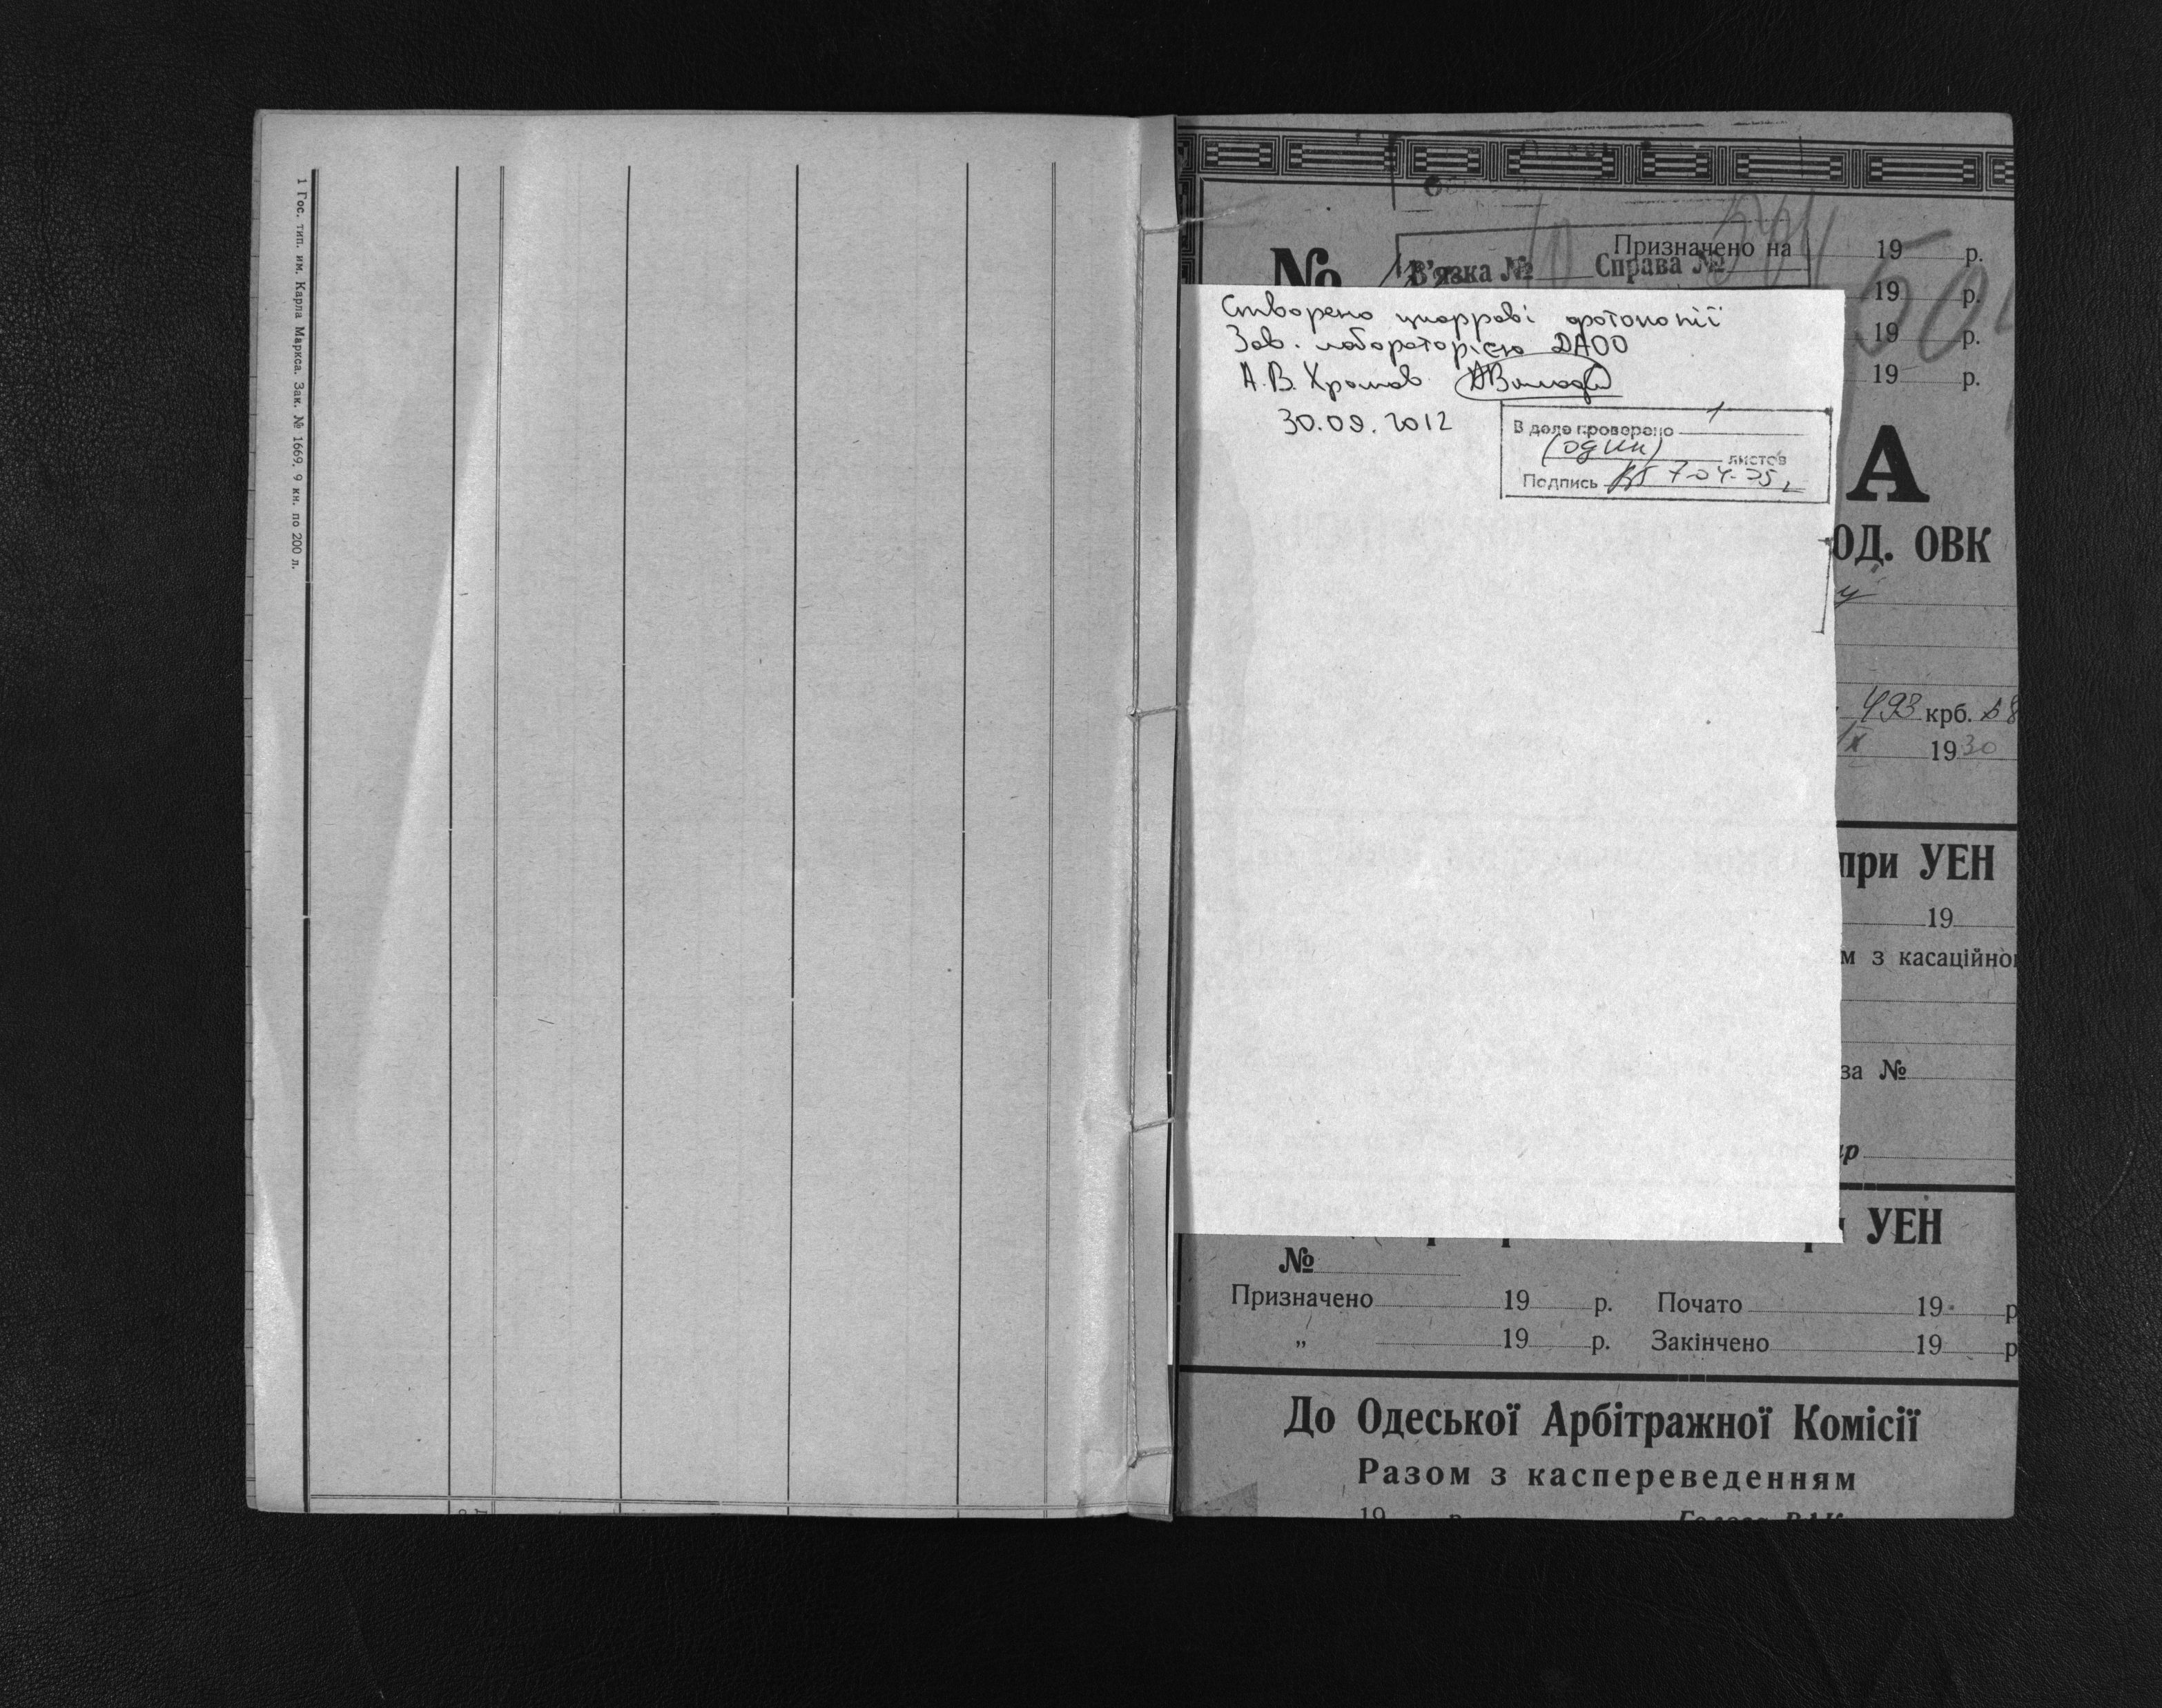 1 Гос. тип. им. Карла Маркса. Зак. № 1669. 9 кн. по 200 л.
№
В'язка № Справа №
Призначено на 19 р.
19 р.
19 р.
19 р.
Створено цифрові фотокопії
Зав. лабораторією ДАОО
А.В. Хромов
30.09.2012
В деле проверено 1
(один) листов
Подпись 7-04-75
А
ОД. ОВК
493 крб. 58
IX 1930
при УЕН
19
м з касаційно
за №
УЕН
№
Призначено 19 р. Почато 19 р
„ 19 р. Закінчено 19 р
До Одеської Арбітражної Комісії
Разом з каспереведенням
19 р.